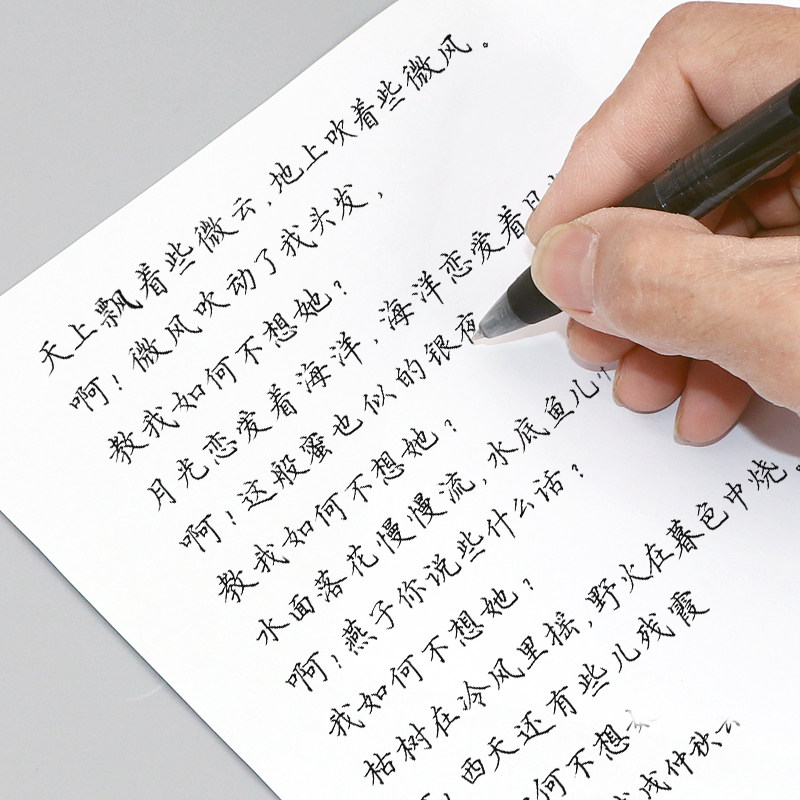 天上飘着些微云，地上吹着些微风。
啊！微风吹动了我头发，
教我如何不想她？
月光恋爱着海洋，海洋恋爱着月
啊！这般蜜也似的银夜
教我如何不想她？
水面落花慢慢流，水底鱼儿
啊！燕子你说些什么话？
我如何不想她？
枯树在冷风里摇，野火在暮色中烧。
西天还有些儿残霞
何不想
戌仲秋